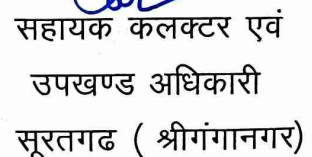 सहायक कलक्टर एवं
उपखण्ड अधिकारी
सूरतगढ ( श्रीगंगानगर)